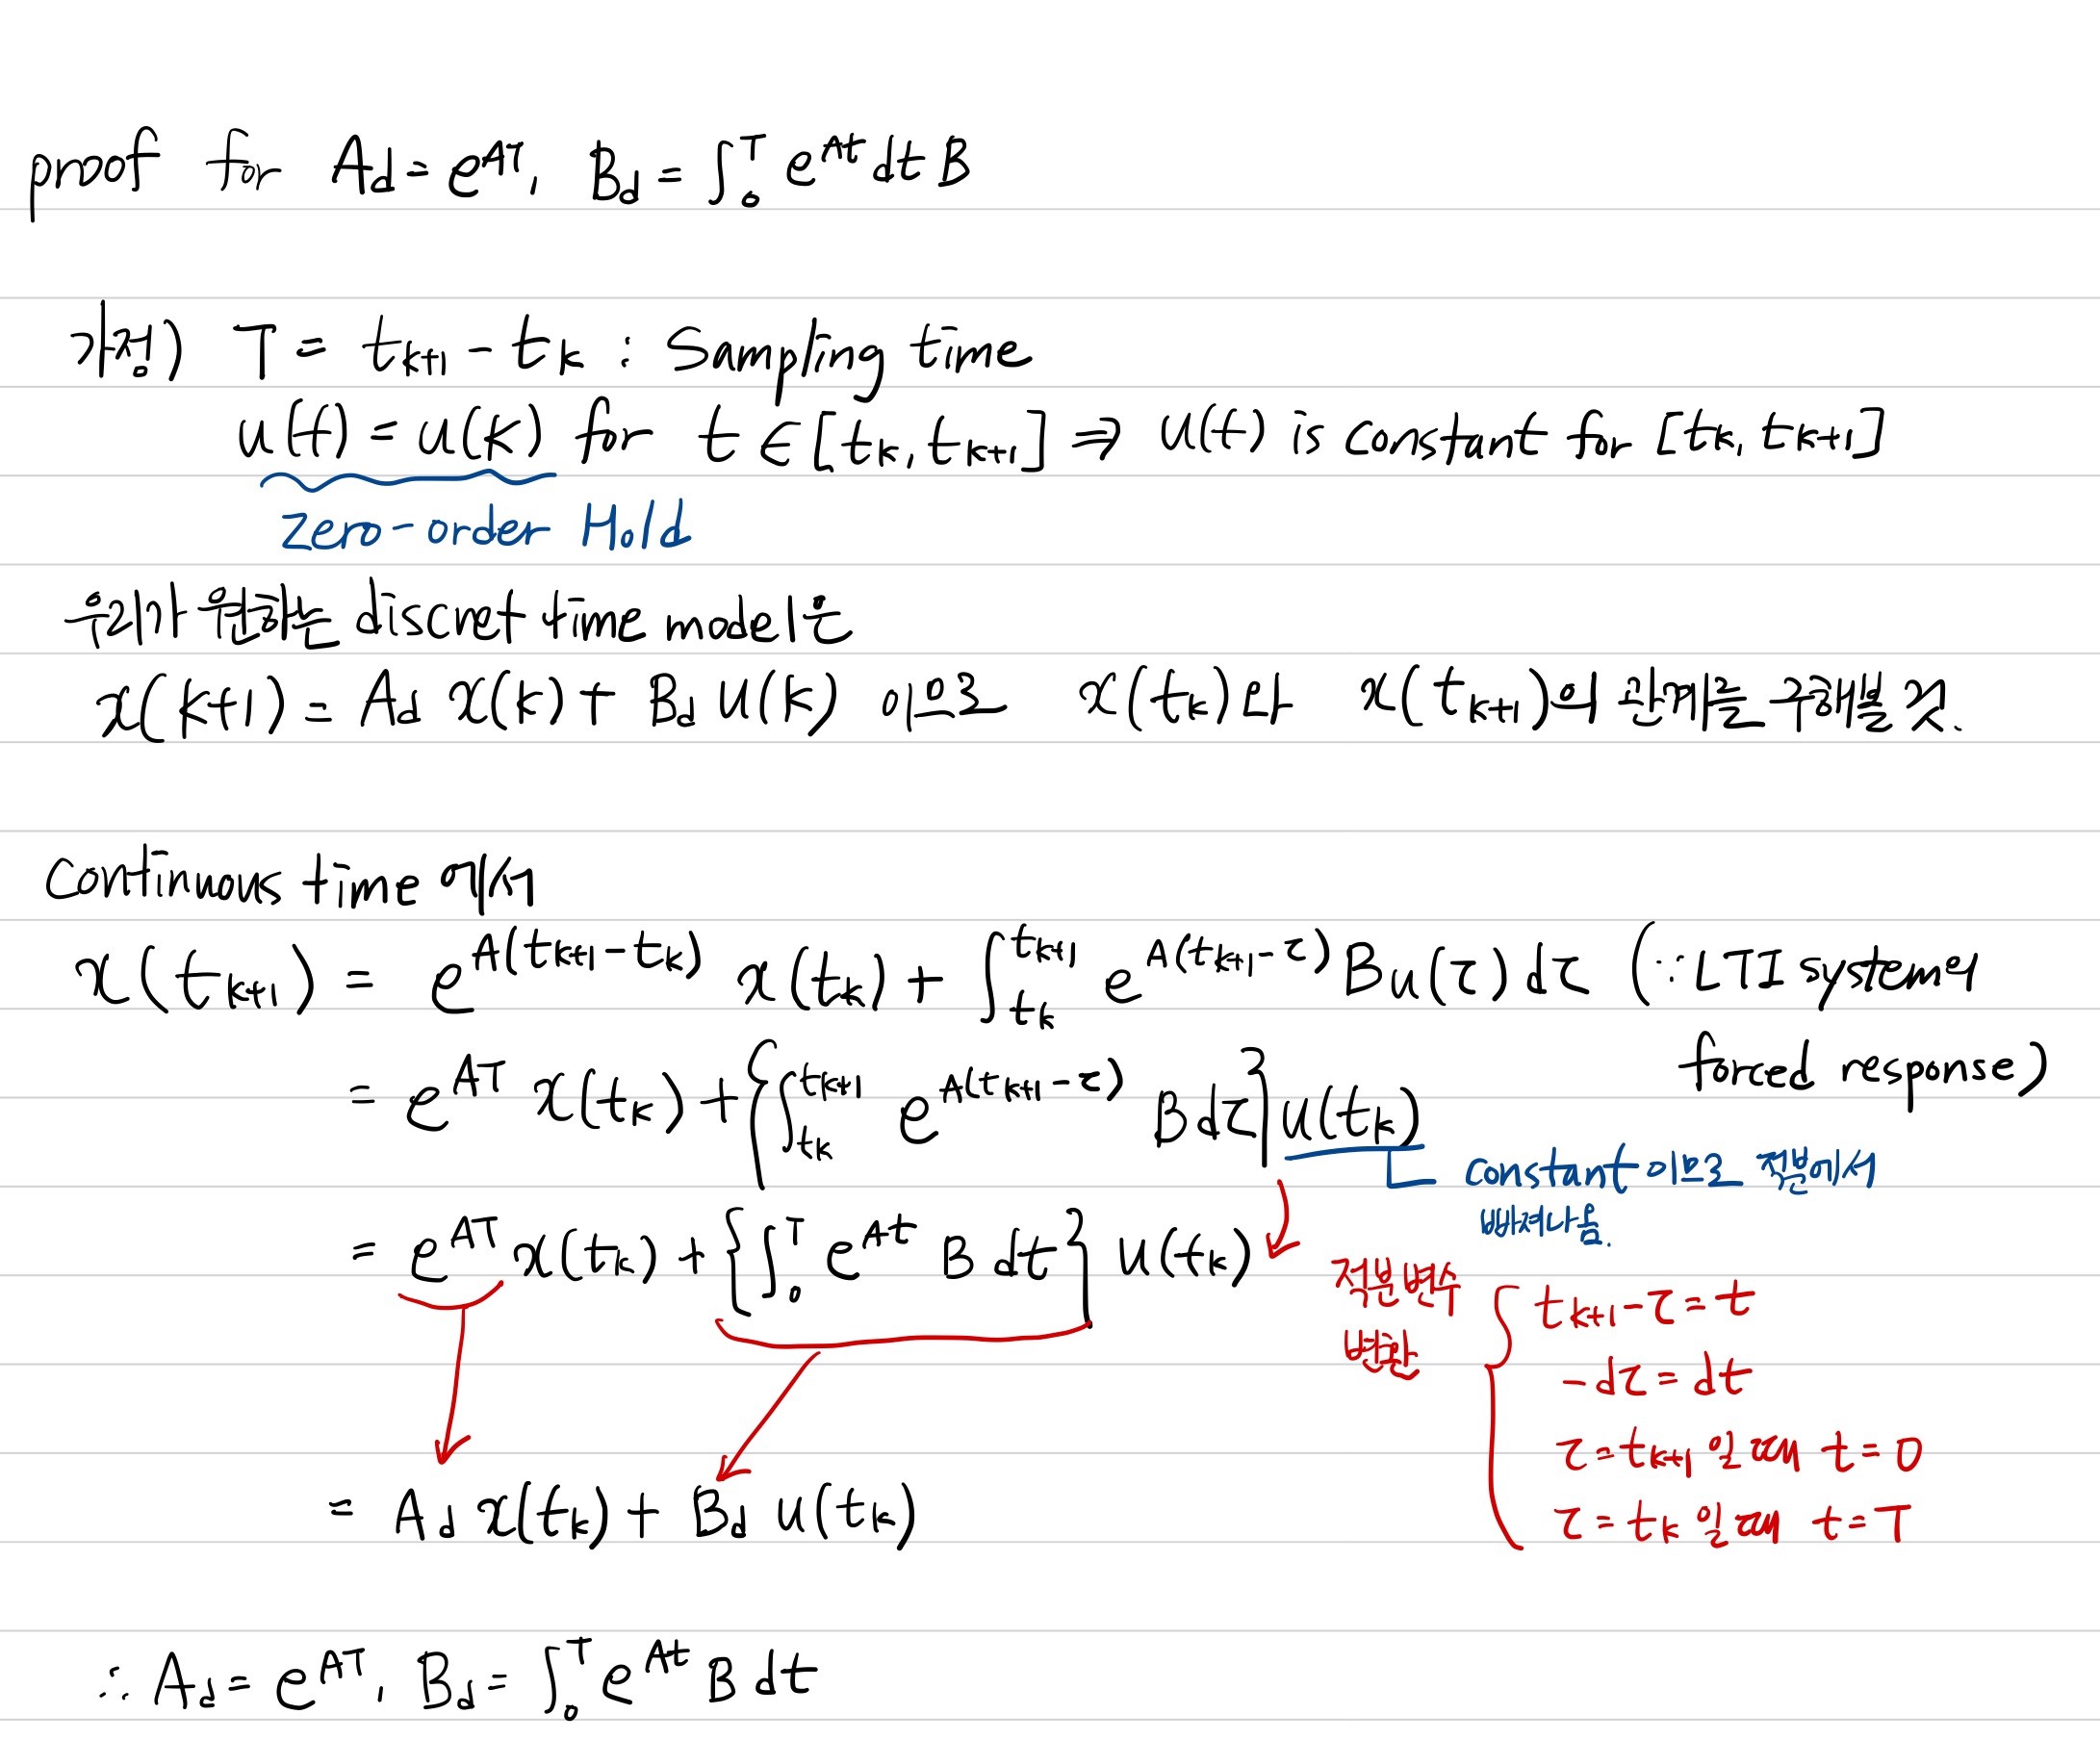 proof for A_d = e^{AT}, B_d = ∫_0^T e^{At} dt B
가정) T = t_{k+1} - t_k : Sampling time
u(t) = u(k) for t ∈ [t_k, t_{k+1}] ⇒ u(t) is constant for [t_k, t_{k+1}]
Zero-order Hold
우리가 원하는 discret time model은
x(k+1) = A_d x(k) + B_d u(k) 이므로 x(t_k)와 x(t_{k+1})의 관계를 구해볼 것.
Continuous time 에서
x(t_{k+1}) = e^{A(t_{k+1}-t_k)} x(t_k) + ∫_{t_k}^{t_{k+1}} e^{A(t_{k+1}-τ)} B u(τ) dτ (∵ LTI system의
forced response)
= e^{AT} x(t_k) + {∫_{t_k}^{t_{k+1}} e^{A(t_{k+1}-τ)} B dτ} u(t_k)
constant 이므로 적분에서
빠져나옴.
= e^{AT} x(t_k) + {∫_0^T e^{At} B dt} u(t_k)
적분변수
변환
t_{k+1} - τ = t
-dτ = dt
τ = t_{k+1} 일 때 t = 0
τ = t_k 일 때 t = T
= A_d x(t_k) + B_d u(t_k)
∴ A_d = e^{AT}, B_d = ∫_0^T e^{At} B dt